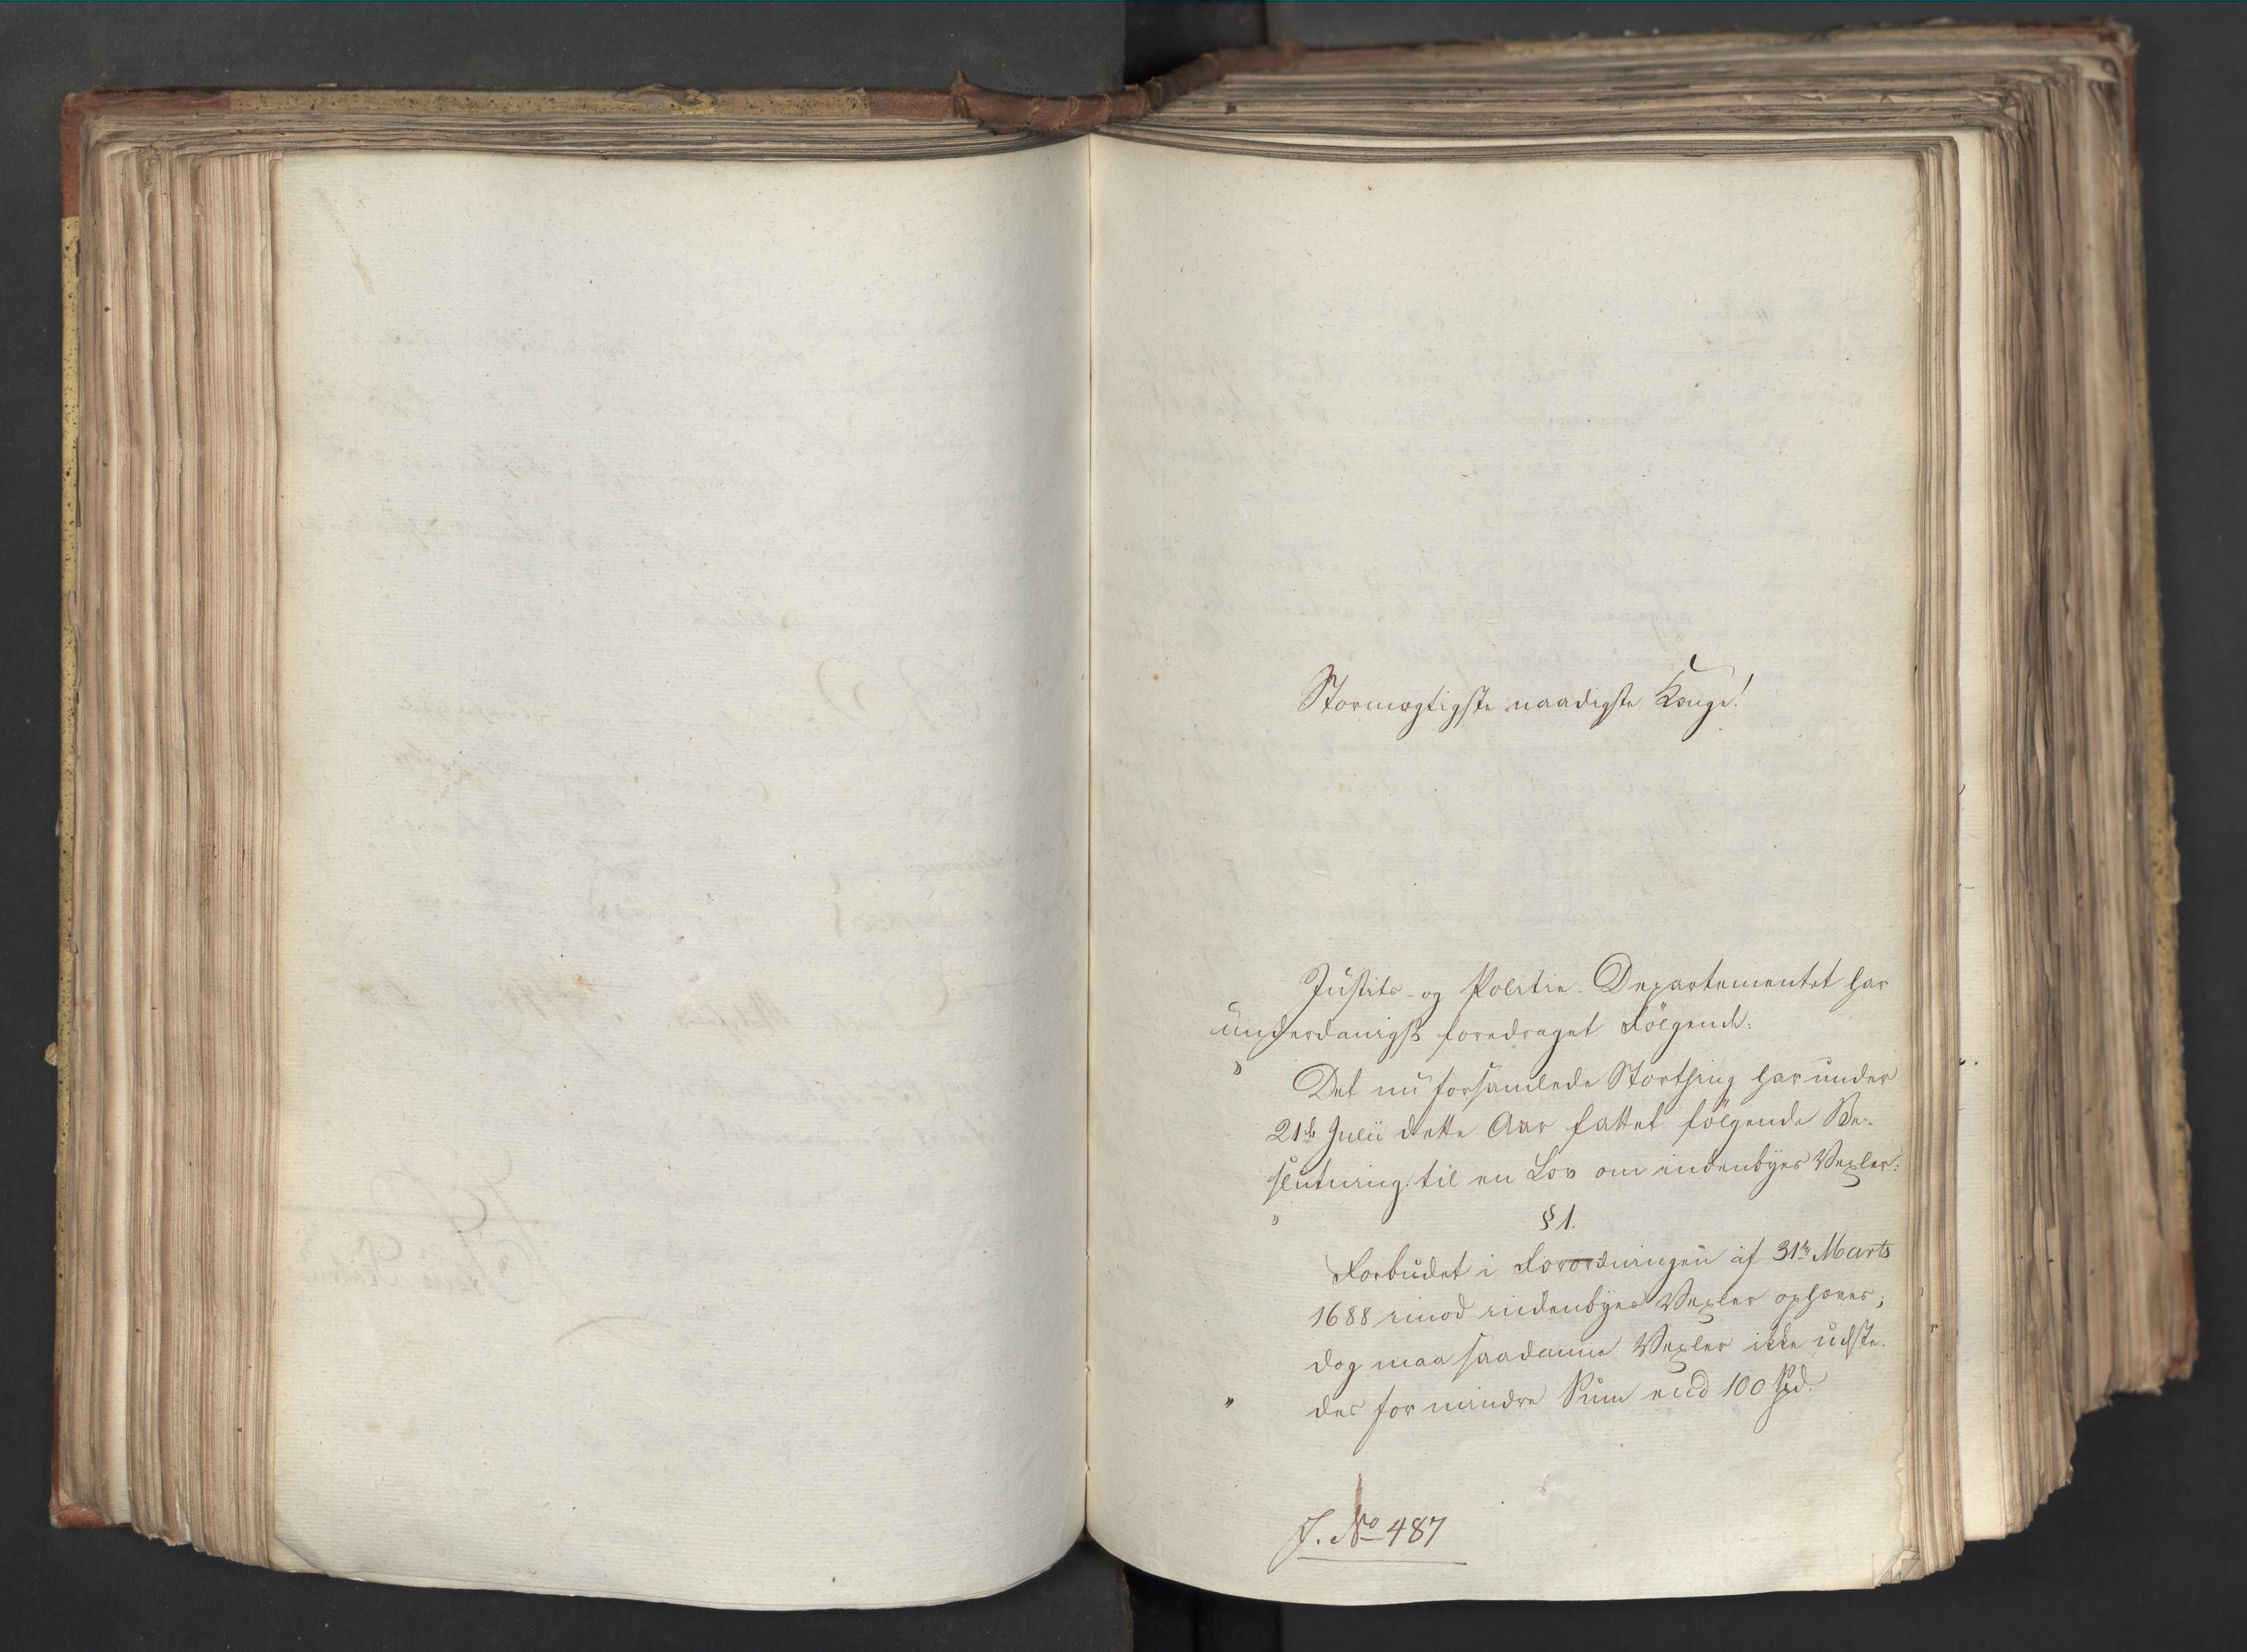 Stormægtigste naadigste Konge!
Justits- og Politie-Departementet har
underdanigst foredraget Følgende:
" Det nu forsamlede Storthing har under
21de Julii dette Aar fattet følgende Be-
slutning til en Lov om indenbyes Vexler:
" § 1.
Forbudet i Forordningen af 31te Marts
1688 imod indenbyes Vexler ophæves;
dog maa saadanne Vexler ikke udste-
" des for mindre Sum end 100 Spd.
J. No 487